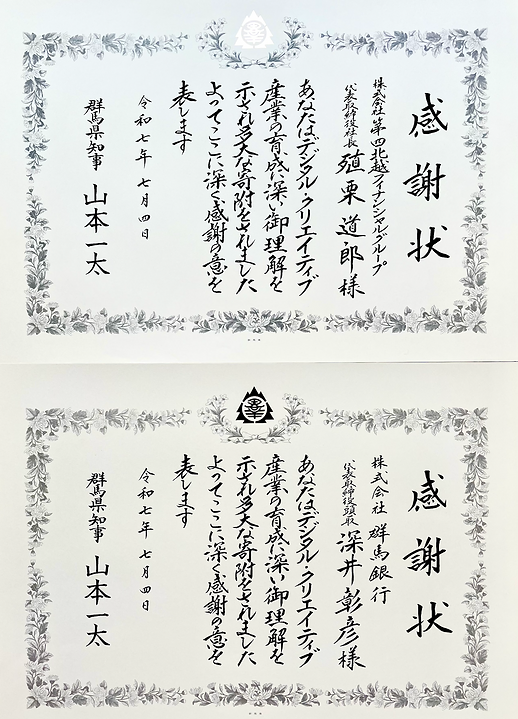 感謝状
株式会社 第四北越フィナンシャルグループ
代表取締役社長 殖栗道郎様
あなたはデジタル・クリエイティブ
産業の育成に深い御理解を
示され多大な寄附をされました
よってここに深く感謝の意を
表します
令和七年七月四日
群馬県知事 山本一太
感謝状
株式会社 群馬銀行
代表取締役頭取 深井彰彦様
あなたはデジタル・クリエイティブ
産業の育成に深い御理解を
示され多大な寄附をされました
よってここに深く感謝の意を
表します
令和七年七月四日
群馬県知事 山本一太